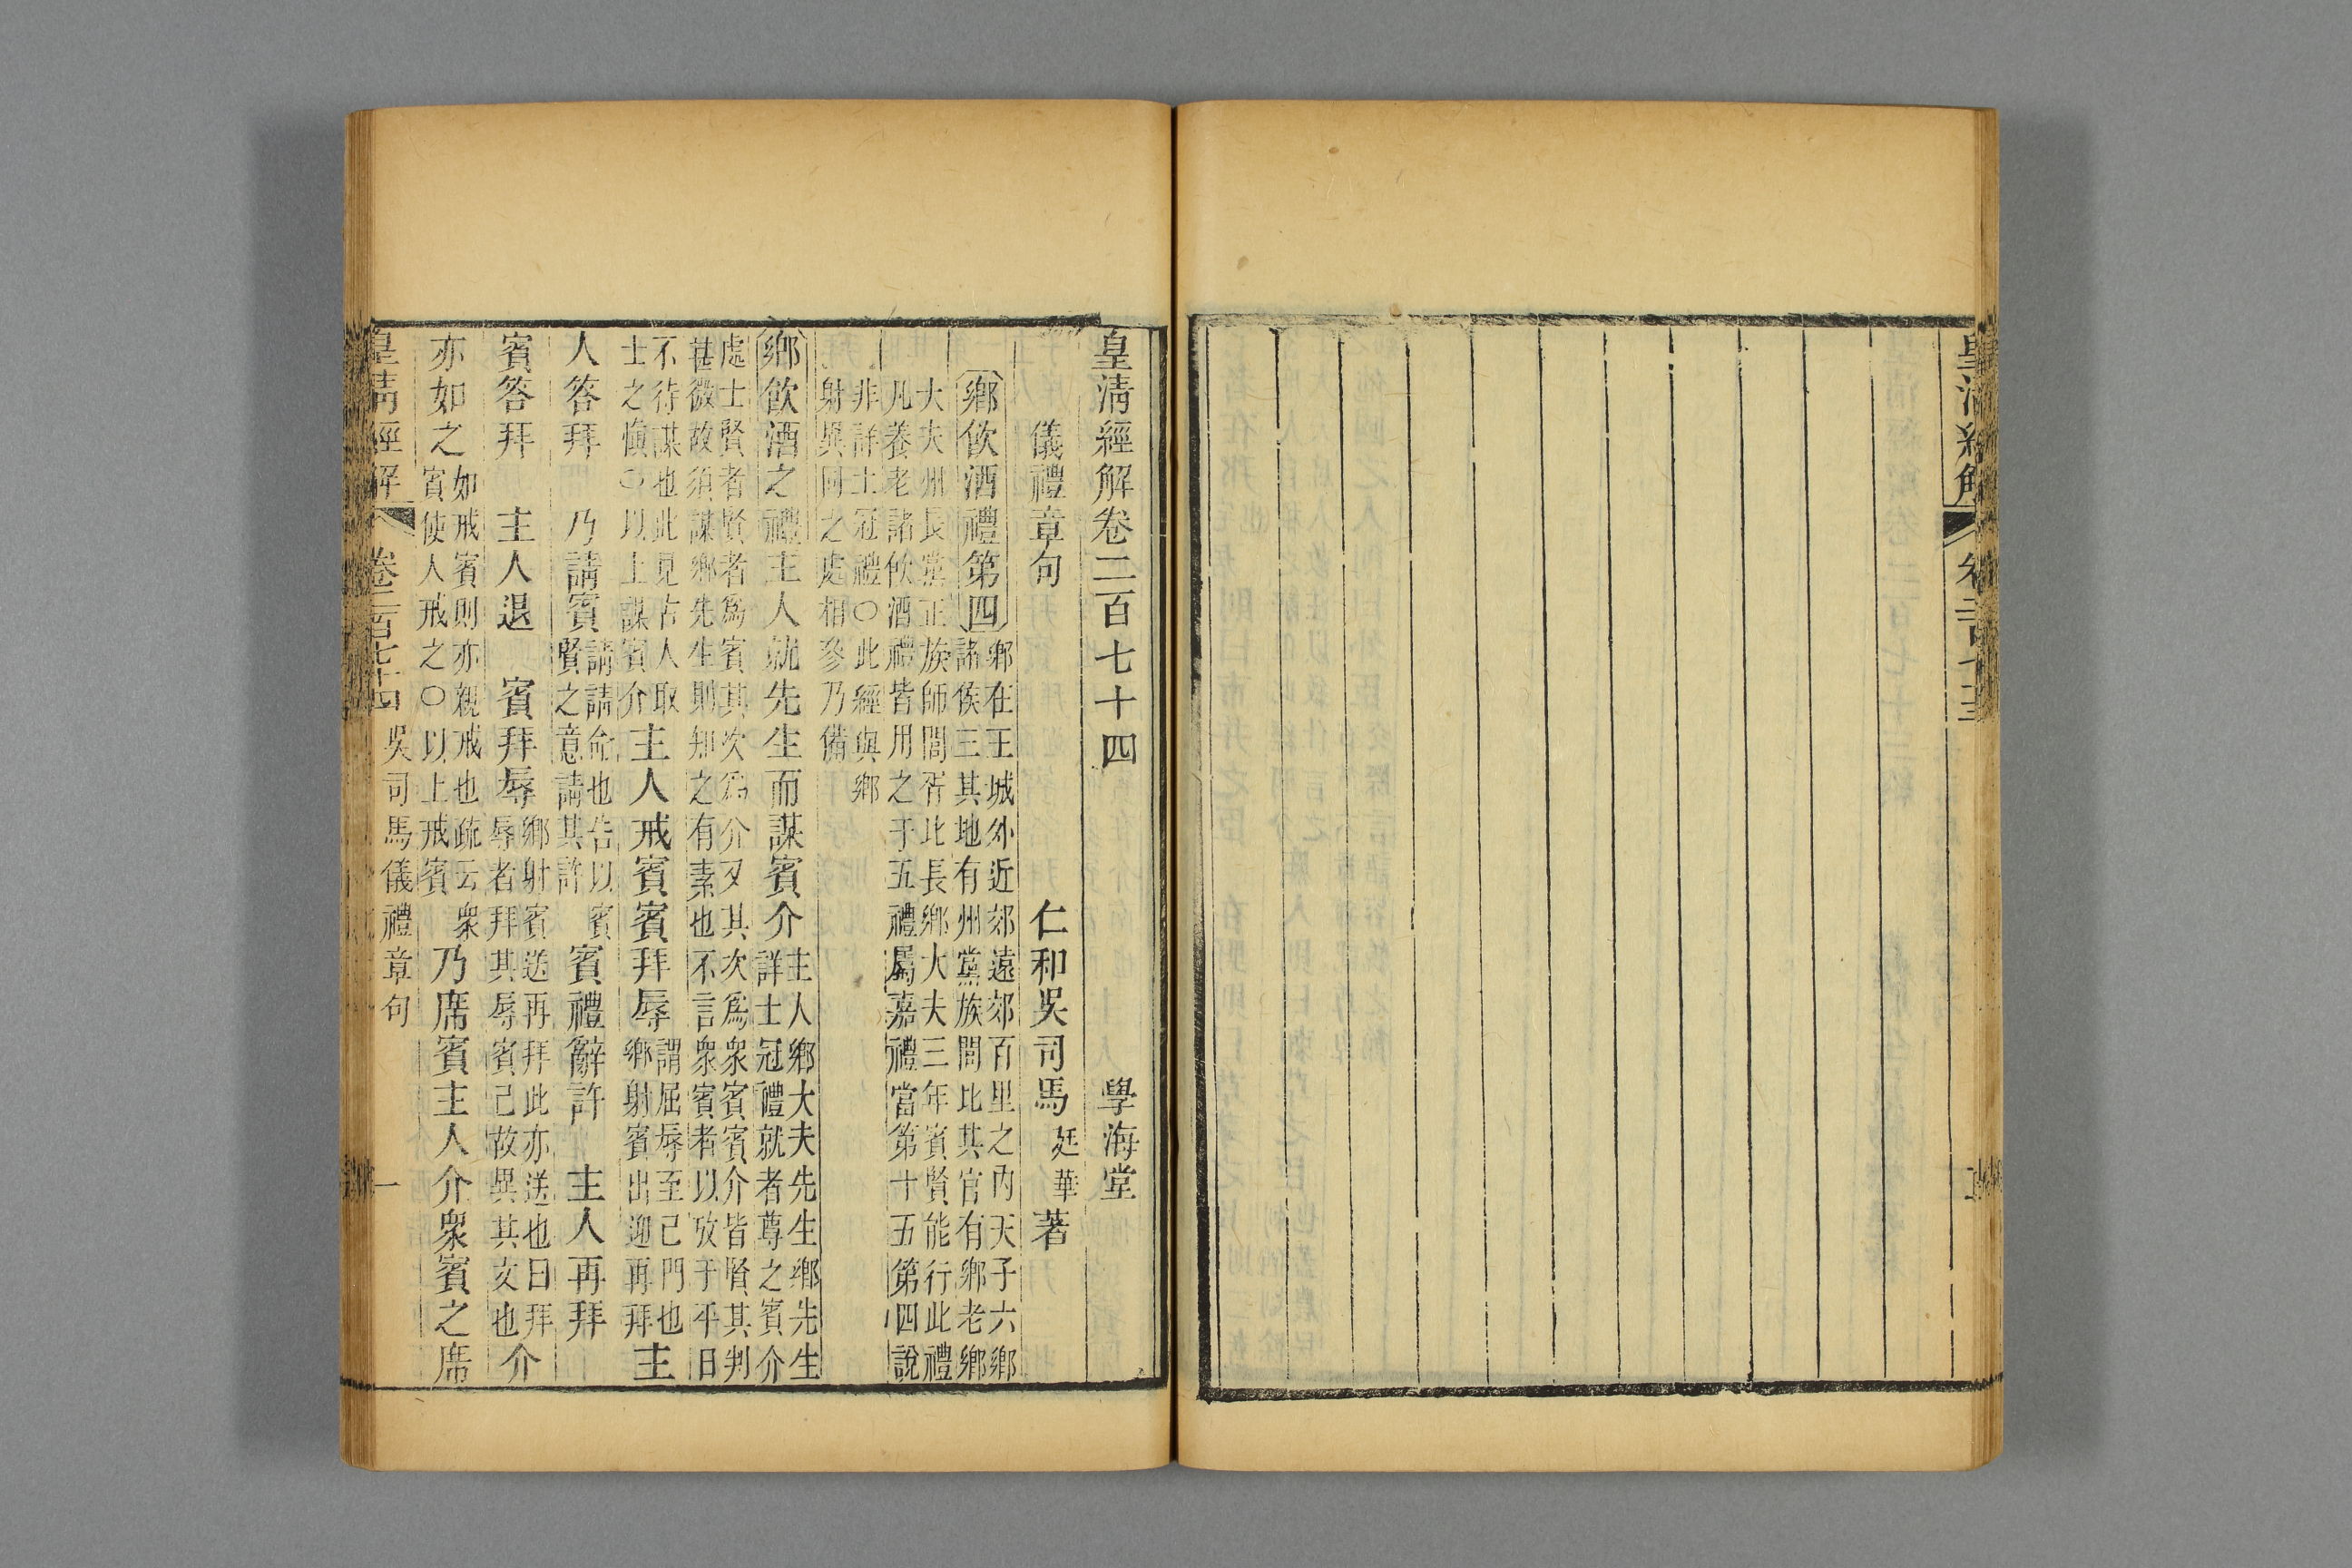 皇清經解卷二百七十四　學海堂
儀禮章句　仁和吳司馬廷華著
鄉飲酒禮第四鄉在王城外近郊遠郊百里之內天子六鄉
諸侯三其地有州黨族閭比其官有鄉老鄉
大夫州長黨正族師閭胥比長鄉大夫三年賓賢能行此禮
凡養老諸飲酒禮皆用之于五禮屬嘉禮當第十五第四說
非詳士冠禮○此經與鄉
射異同之處相參乃備
鄉飲酒之禮主人就先生而謀賓介主人鄉大夫先生鄉先生
詳士冠禮就者尊之賓介
處士賢者賢者爲賓其次爲介又其次爲眾賓賓介皆賢其判
甚微故須謀鄉先生則知之有素也不言眾賓者以攷于平日
不待謀也此見古人取
士之愼○以上謀賓介
主人戒賓賓拜辱謂屈辱至己門也
鄉射賓出迎再拜
主
人答拜　乃請賓請請命也告以賓
賢之意請其許
賓禮辭許　主人再拜
賓答拜　主人退　賓拜辱鄉射賓送再拜此亦送也曰拜
辱者拜其辱賓己故異其文也
介
亦如之如戒賓則亦親戒也疏云眾
賓使人戒之○以上戒賓
乃席賓主人介眾賓之席
皇清經解　卷二百七十四　吳司馬儀禮章句　一